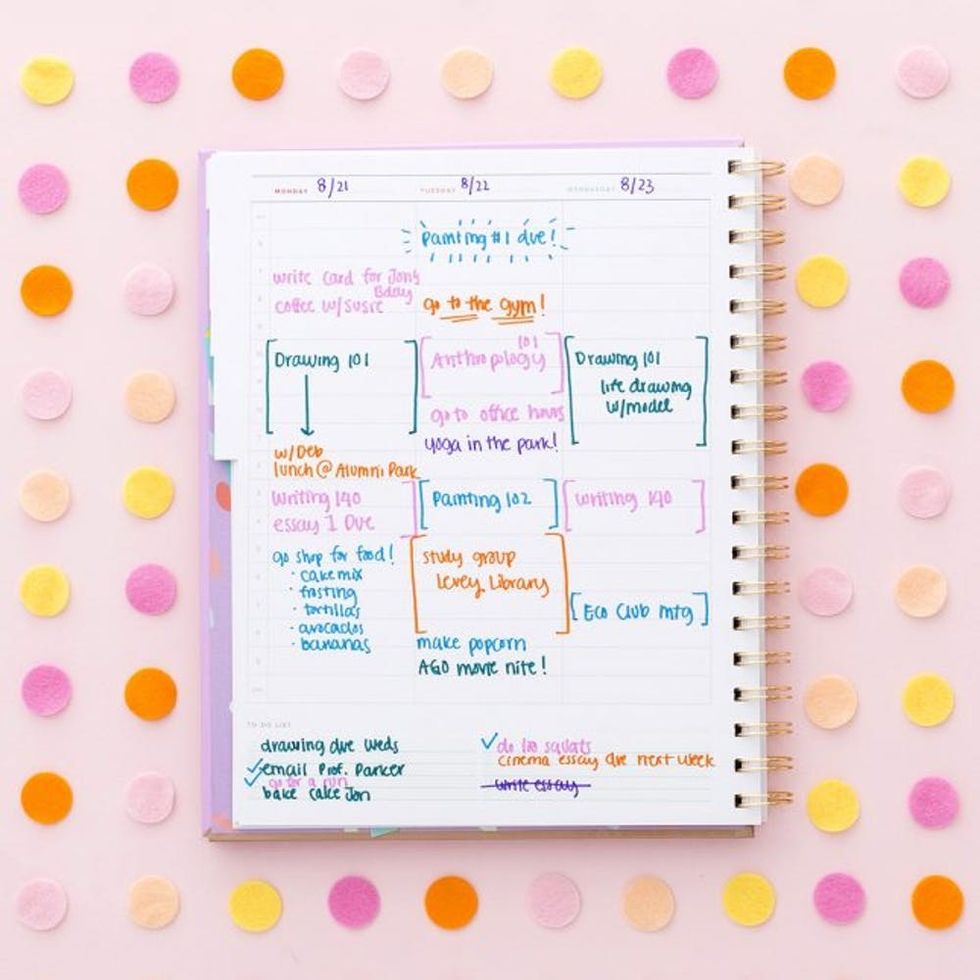 MONDAY 8/21
write card for Jon's
Bday
coffee w/Susie
Drawing 101
w/Deb
lunch @ Alumni Park
Writing 140
essay 1 Due
go shop for food!
· cake mix
· frosting
· tortillas
· avocados
· bananas
TUESDAY 8/22
Painting #1 due!
go to the gym!
101
Anthropology
go to office hours
yoga in the park!
Painting 102
study group
Levey Library
make popcorn
AGO movie nite!
WEDNESDAY 8/23
Drawing 101
life drawing
w/model
Writing 140
Eco Club mtg
TO DO LIST
drawing due weds
email Prof. Parker
go for a run
bake cake Jon
do 100 squats
cinema essay due next week
write essay